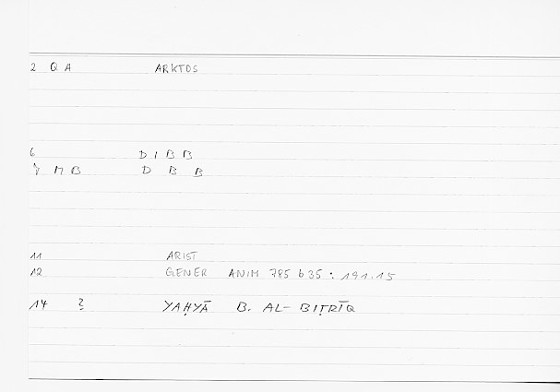 2 Q A ARKTOS
6 D I B B
M B D B B
11 ARIST
12 GENER ANIM 785 b 35 : 191.15
14 ? YAḤYĀ B. AL-BIṬRĪQ